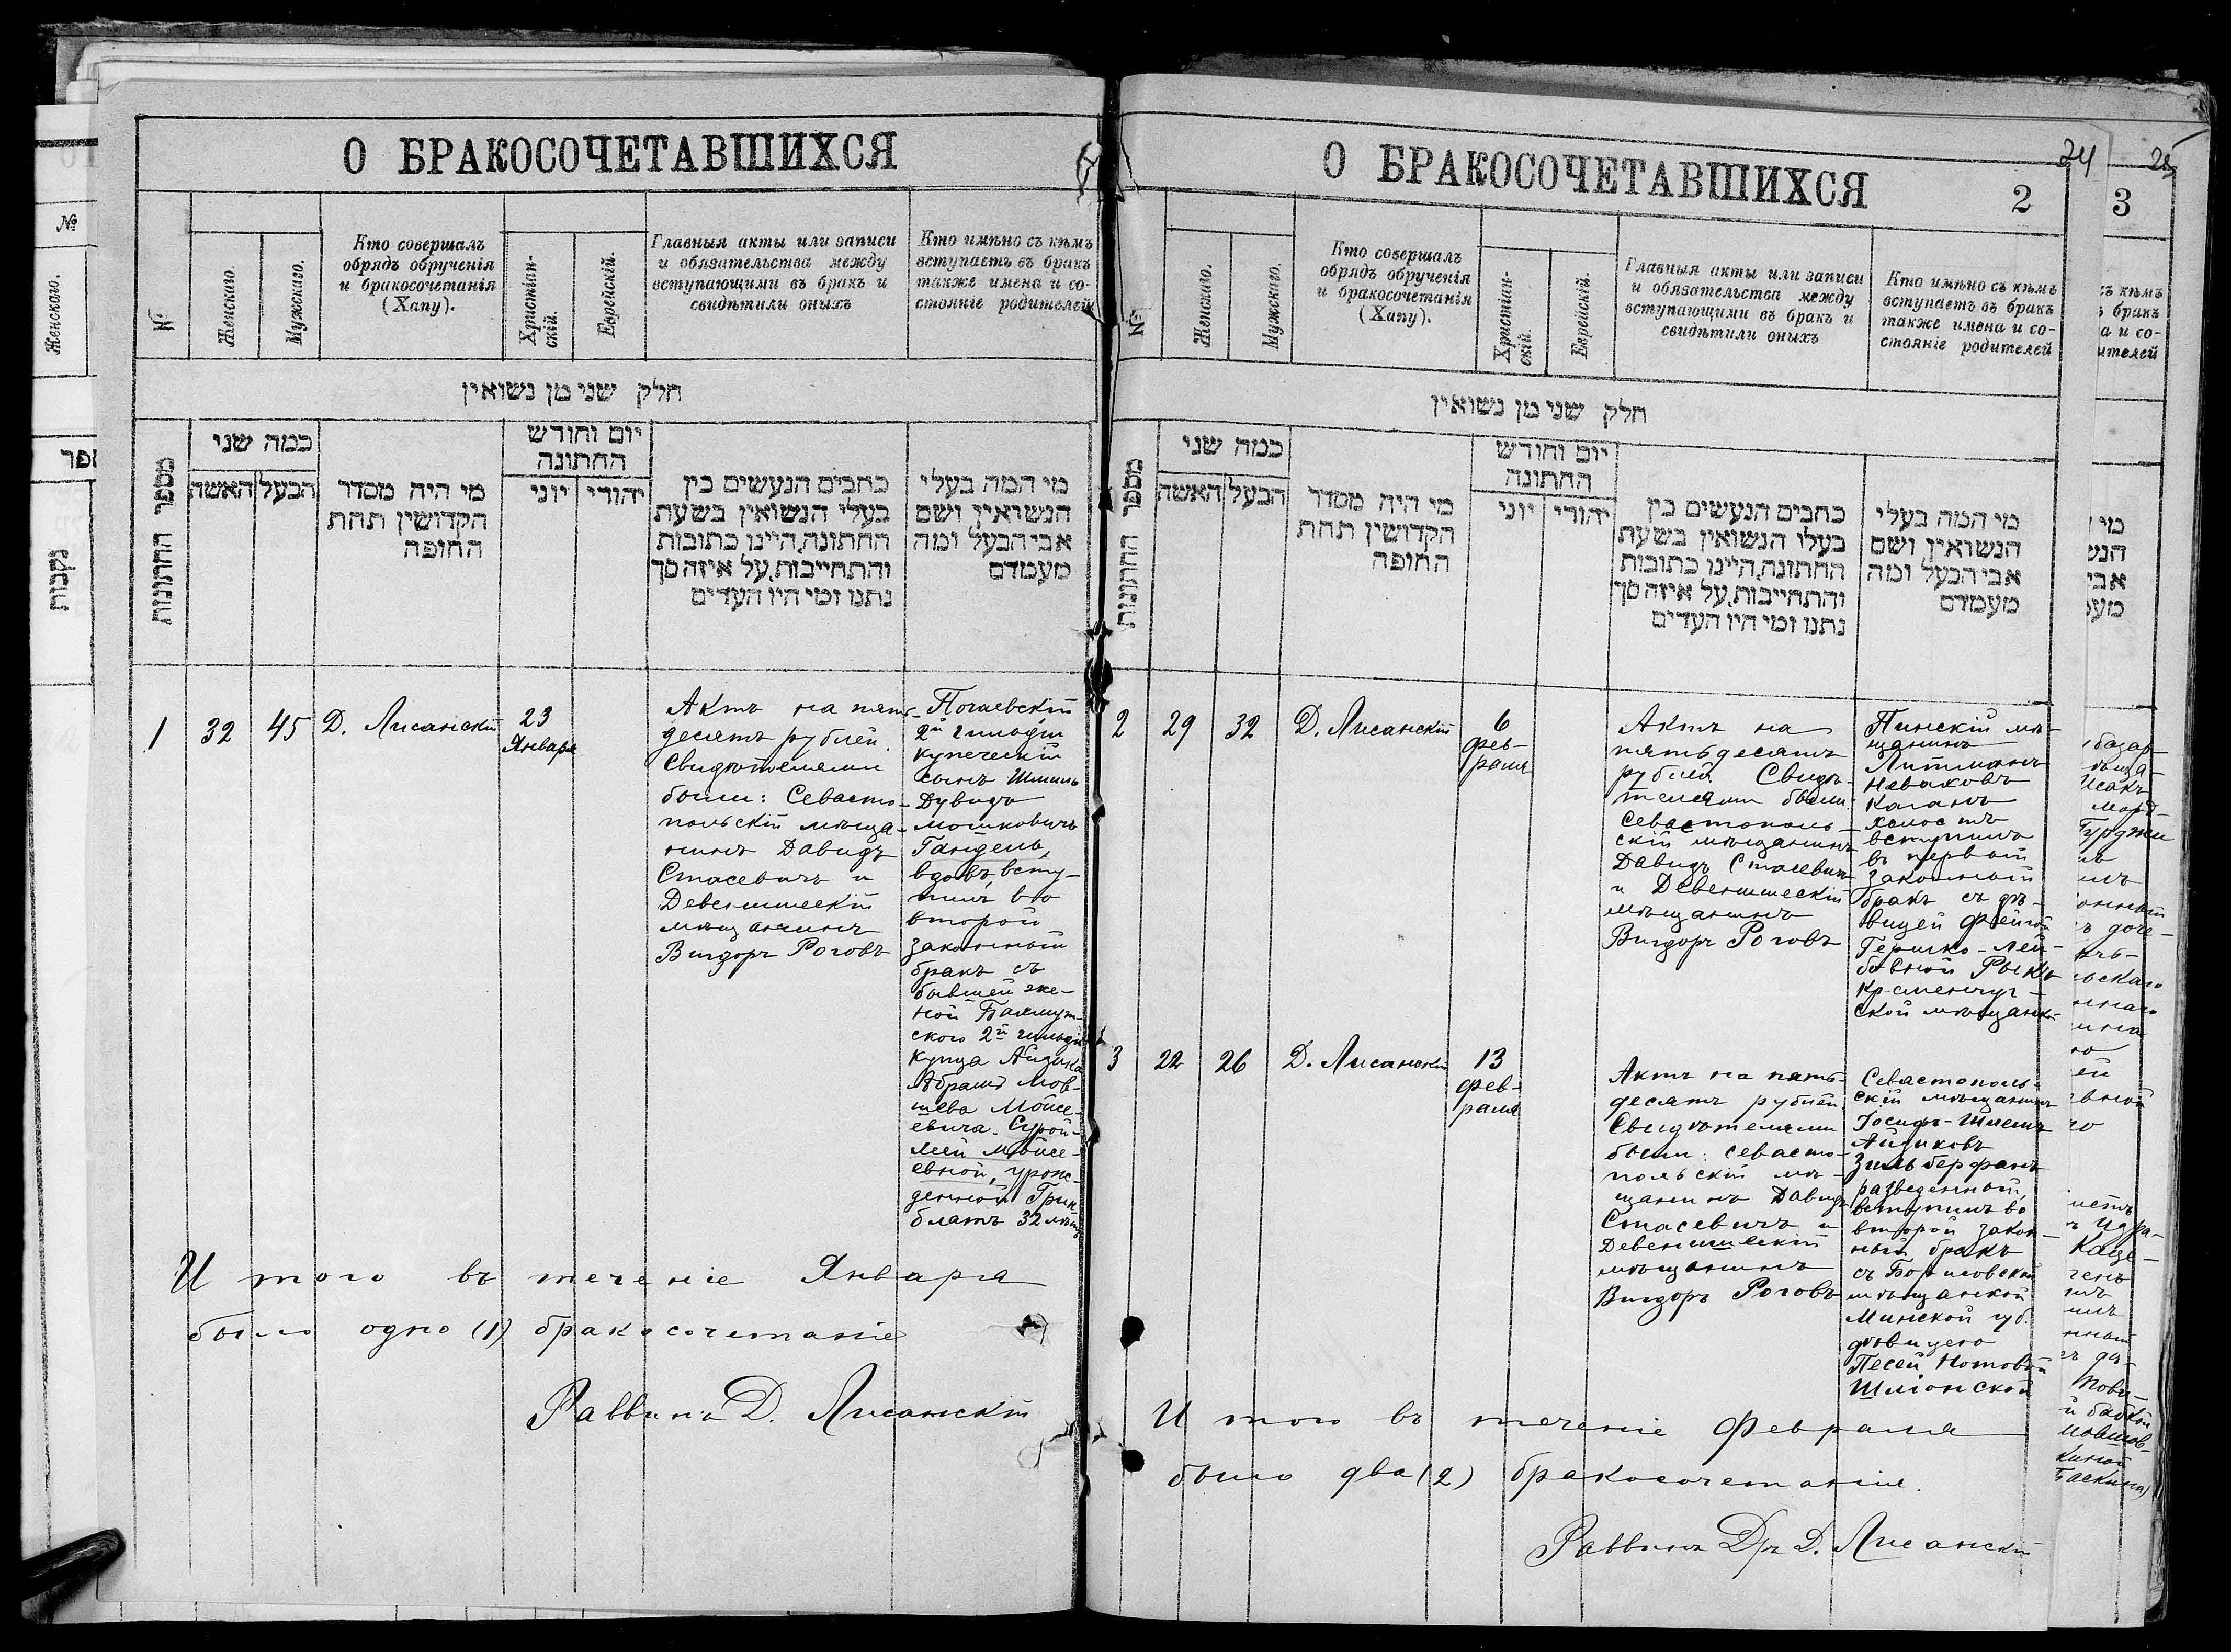 О БРАКОСОЧЕТАВШИХСЯ
№
Женскаго.
Мужскаго.
Кто совершалъ
обрядъ обрученія
и бракосочетанія
(Хапу).
Христіан-
скій.
Еврейскій.
Главныя акты или записи
и обязательства между
вступающими въ бракъ и
свидѣтили оныхъ
Кто имѣно съ кѣмъ
вступаетъ въ бракъ
также имена и со-
стояніе родителей
חלק שני מן נשואין
מספר החתונות
כמה שני
האשה
הבעל
מי היה מסדר
הקדושין תחת
החופה
יום וחודש
החתונה
יוני
יהודי
כתבים הנעשים בין
בעלי הנשואין בשעת
החתונה,היינו כתובות
והתחייבות,על איזה סך
נתנו ומי היו העדים
מי המה בעלי
הנשואין ושם
אבי הבעל ומה
מעמדם
1
32
45
Д. Лисанскій
23
Января
Актъ на пять-
десятъ рублей.
Свидѣтелями
были: Севасто-
польскій мѣща-
нинъ Давидъ
Стасевичъ и
Девенишскій
мѣщанинъ
Вигдоръ Роговъ
Погаевскій
2й гильдіи
купеческій
сынъ Шмиль
Дувидъ
Мошковичъ
Гандель,
вдовъ, всту-
пилъ во
второй
законный
бракъ съ
бывшей же-
ной Бахмут-
ского 2й гильдіи
купца Айзика
Абрама Мов-
шева Мойсе-
евича. Сурой-
Леей Мойсе-
евной, урож-
денной Грин-
блатъ 32 лѣтъ
Итого въ теченіе Января
было одно (1) бракосочетаніе
Раввинъ Д. Лисанскій
О БРАКОСОЧЕТАВШИХСЯ
24
2
№
Женскаго.
Мужскаго.
Кто совершалъ
обрядъ обрученія
и бракосочетанія
(Хапу).
Христіан-
скій.
Еврейскій.
Главныя акты или записи
и обязательства между
вступающими въ бракъ и
свидѣтили оныхъ
Кто имѣно съ кѣмъ
вступаетъ въ бракъ
также имена и со-
стояніе родителей
חלק שני מן נשואין
מספר החתונות
כמה שני
האשה
הבעל
מי היה מסדר
הקדושין תחת
החופה
יום וחודש
החתונה
יוני
יהודי
כתבים הנעשים בין
בעלו הנשואין בשעת
החתונה,היינו כתובות
והתחייבות,על איזה סך
נתנו ומי היו העדים
מי המה בעלי
הנשואין ושם
אבי הבעל ומה
מעמדם
2
29
32
Д. Лисанскій
6
Фев-
раля
Актъ на
пятьдесятъ
рублей. Свидѣ-
телями были:
Севастополь-
скій мѣщанинъ
Давидъ Стасевичъ
и Девенишскій
мѣщанинъ
Вигдоръ Роговъ
Пинскій мѣ-
щанинъ
Литманъ
Неваховъ
Каганъ
холостъ
вступилъ
въ первый
законный
бракъ съ дѣ-
вицей Фейгой
Гершко-Лей-
бовной Рыкъ
Кременчуг-
ской мѣщанкой
3
22
26
Д. Лисанскій
13
Фев-
раля
Актъ на пять-
десятъ рублей
Свидѣтелями
были: Севасто-
польскій мѣ-
щанинъ Давидъ
Стасевичъ и
Девенишскій
мѣщанинъ
Вигдоръ Роговъ
Севастополь-
скій мѣщанинъ
Іосифъ-Шлема
Айзиковъ
Зильберфанъ
разведенный,
вступилъ во
второй закон-
ный бракъ
съ Борисовской
мѣщанкой
Минской губ.
дѣвицею
Песей Нотовной
Шлионской
Итого въ теченіе Февраля
было два (2) бракосочетанія.
Раввинъ Др Д. Лисанскій
25
3